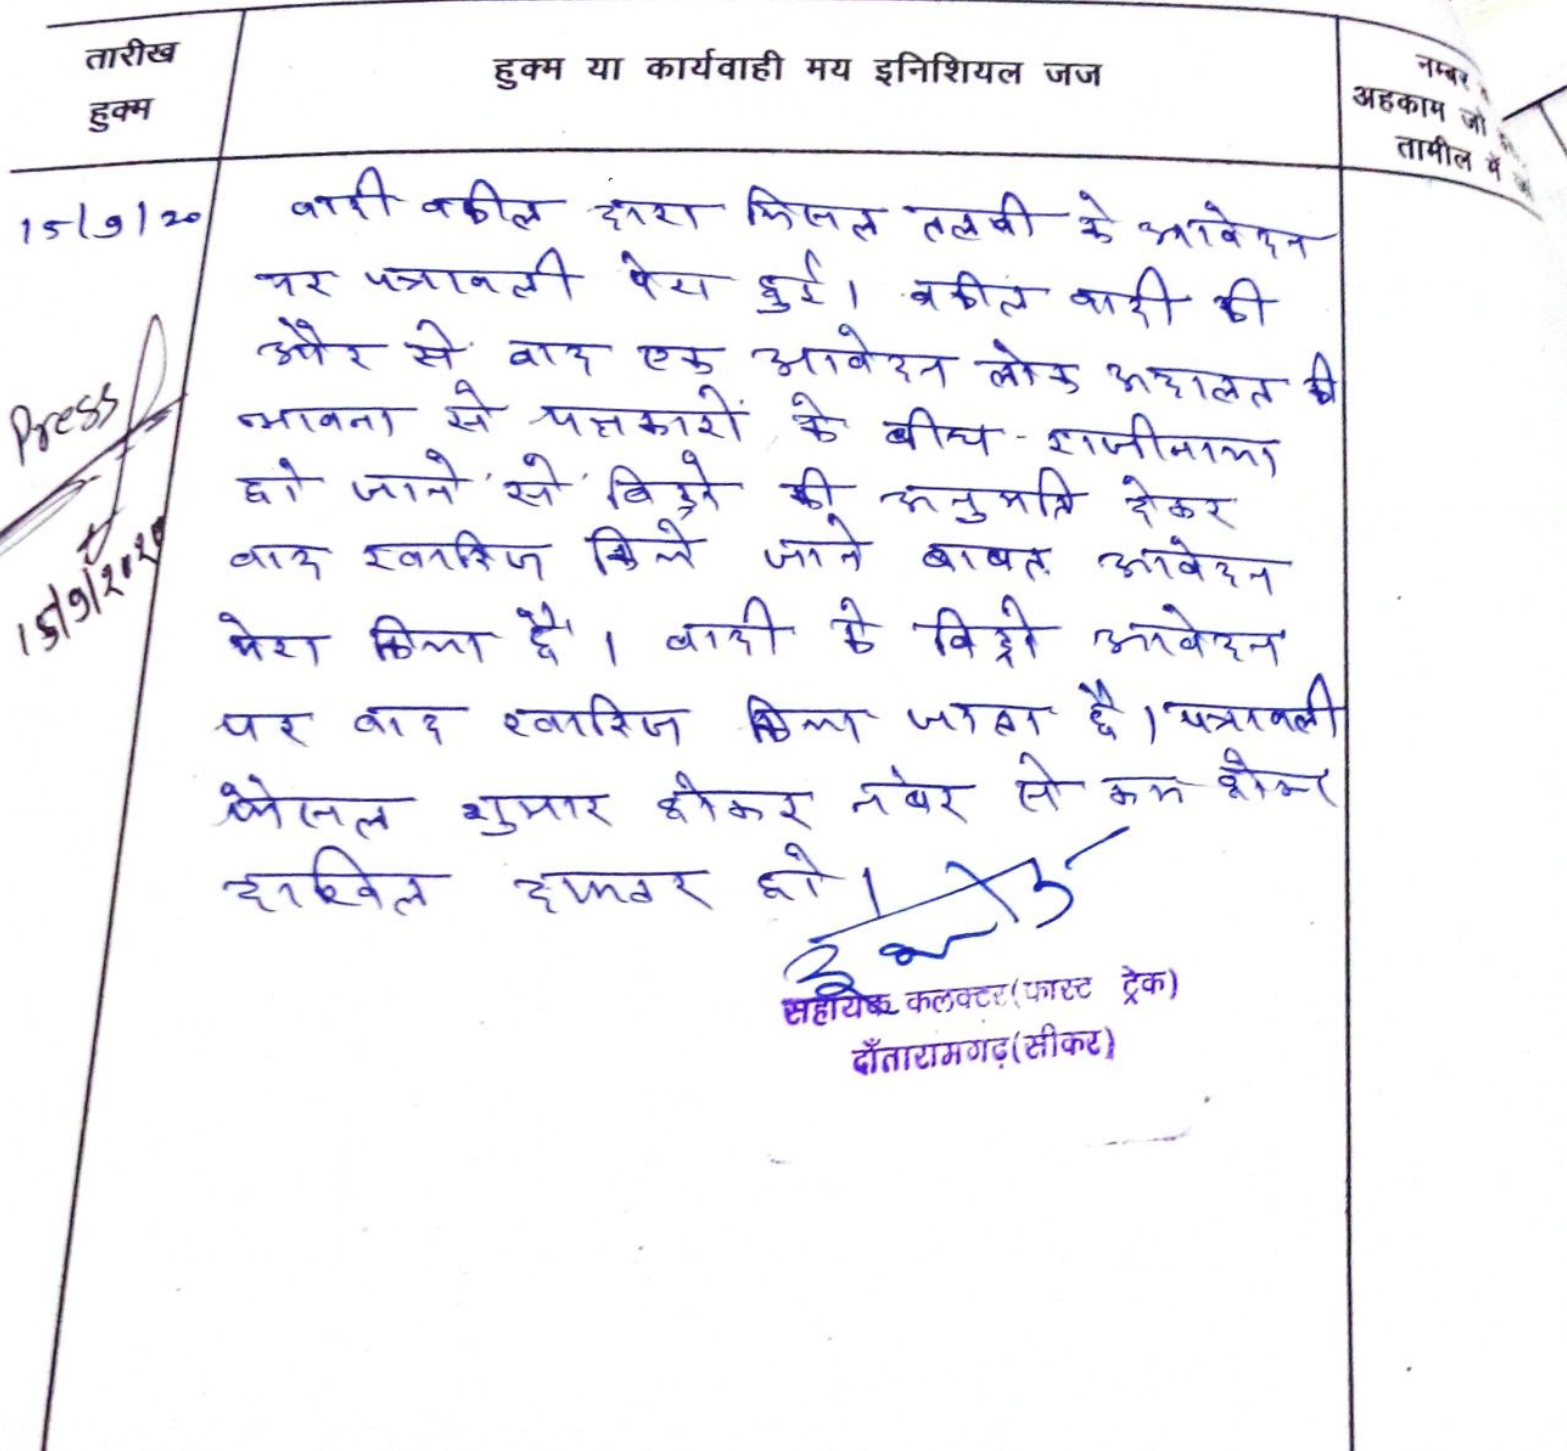 तारीख
हुक्म
हुक्म या कार्यवाही मय इनिशियल जज
नम्बर
अहकाम जो
तामील में
15/9/20
वादी वकील द्वारा मिसल तलबी के आवेदन
पर पत्रावली पेश हुई। वकील वादी की
और से वाद एक आवेदन लोक अदालत की
भावना से पक्षकारों के बीच राजीनामा
हो जाने से विड्रो की अनुमति देकर
वाद खारिज किये जाने बाबत आवेदन
पेश किया है। वादी के विड्रो आवेदन
पर वाद खारिज किया जाता है। पत्रावली
फैसल शुमार होकर नंबर से कम होकर
दाखिल दफ्तर हो।
Press
15/9/2020
सहायक कलक्टर(फास्ट ट्रेक)
दाँतारामगढ़(सीकर)